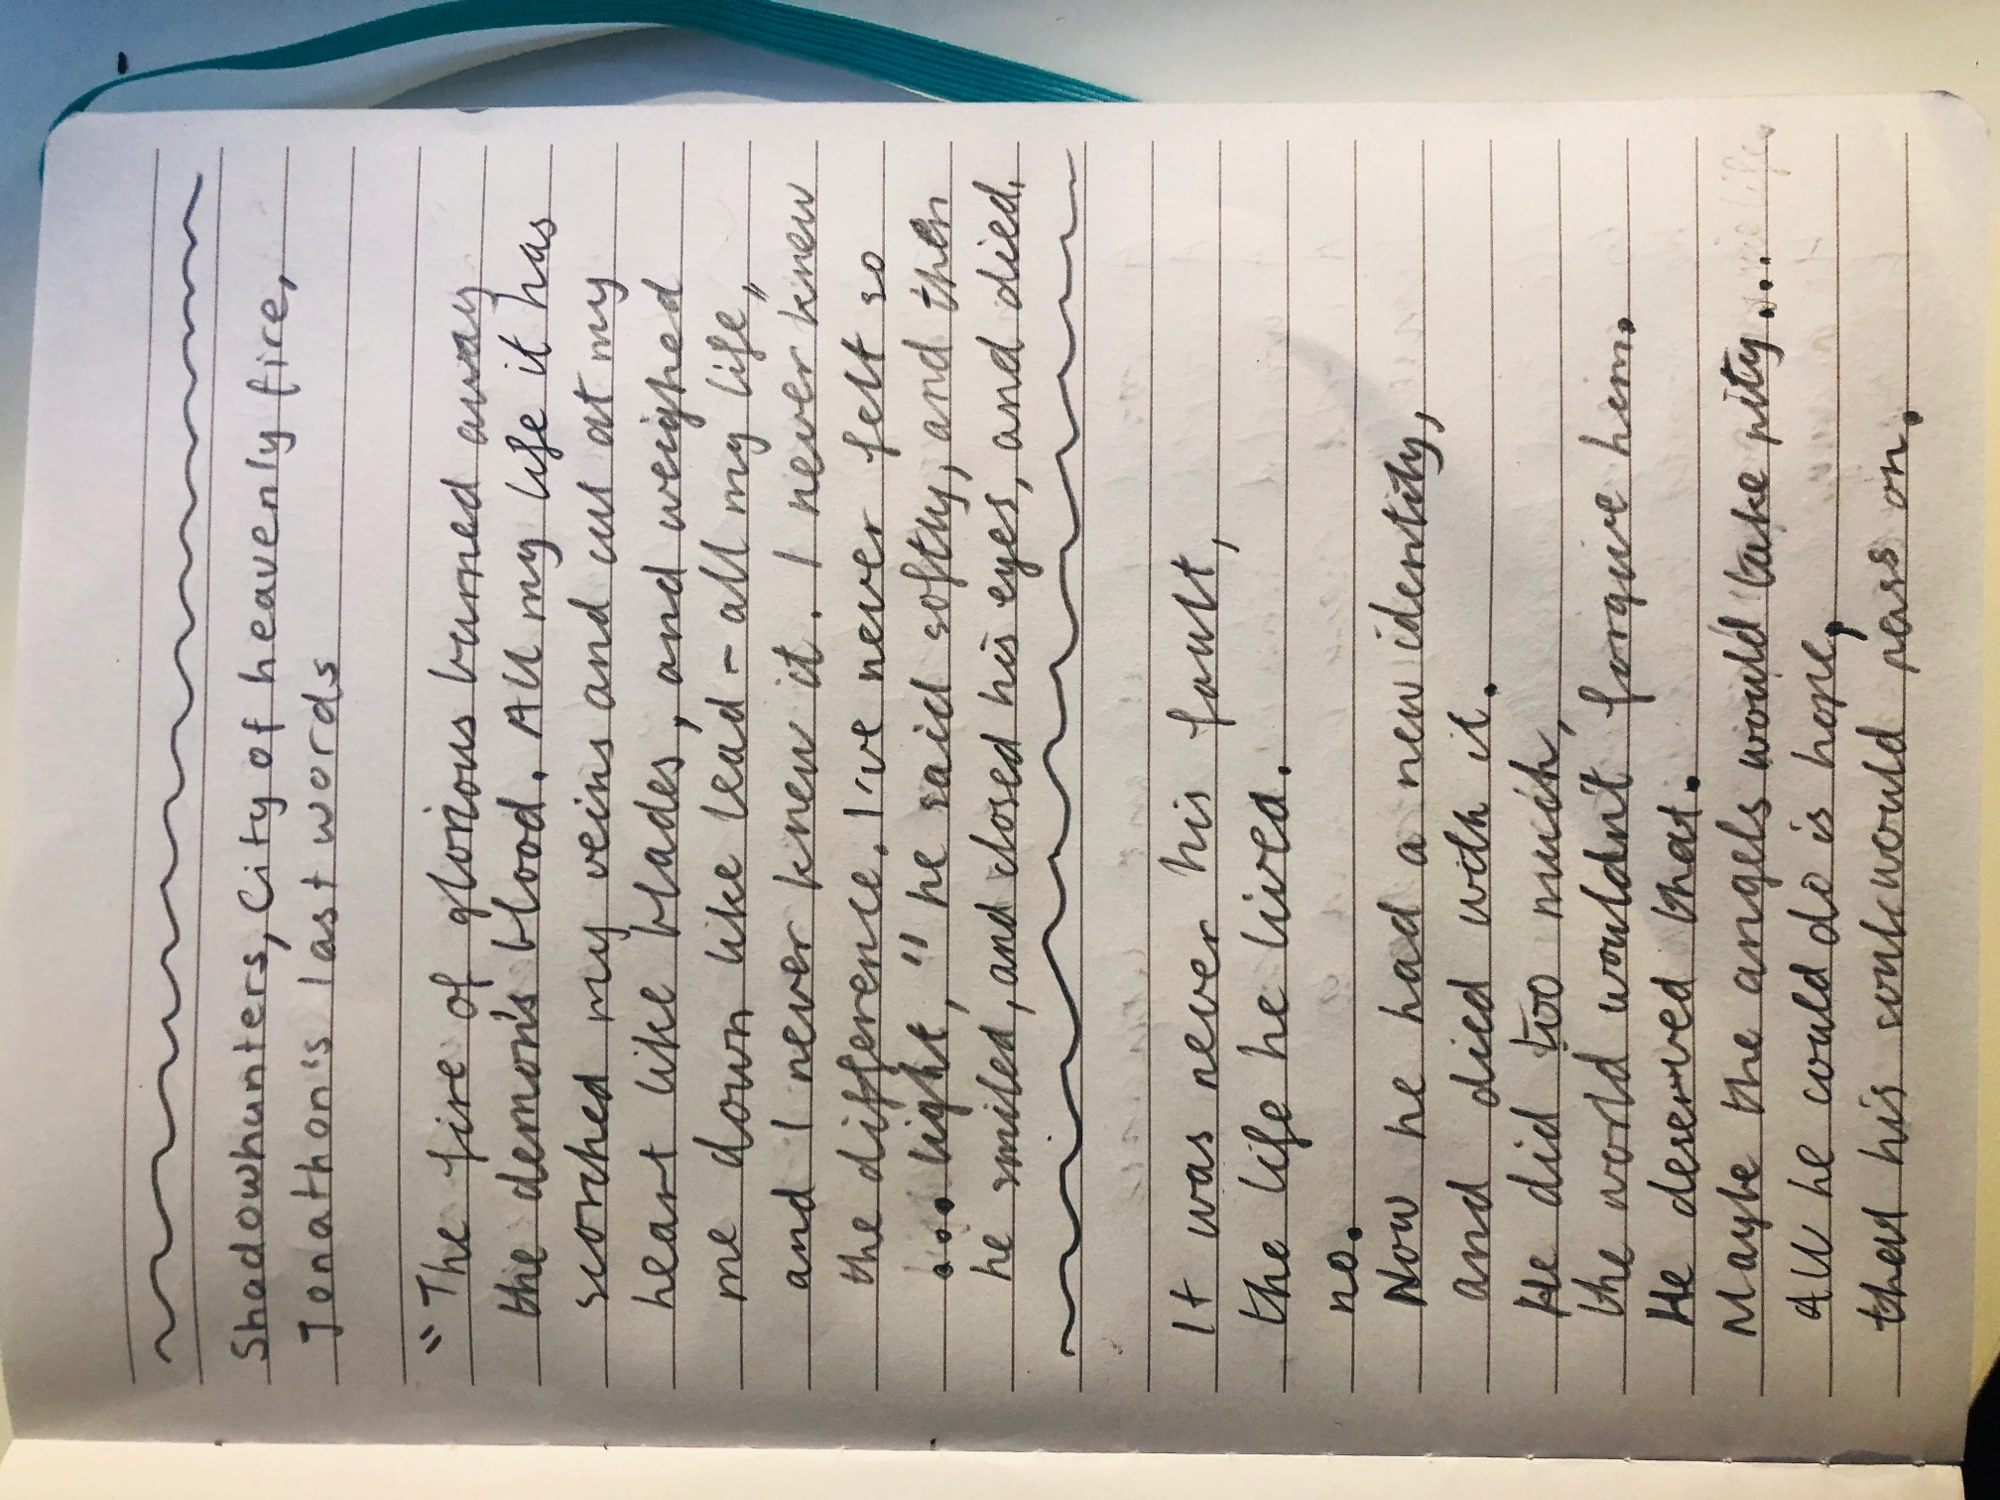 Shadowhunters, City of heavenly fire,
Jonathon's last words
"The fire of glorious burned away
the demon's blood. All my life it has
scorched my veins and cut at my
heart like blades, and weighed
me down like lead - all my life,"
and I never knew it. I never knew
the difference. I've never felt so
... light," he said softly, and then
he smiled, and closed his eyes, and died.
It was never his fault,
the life he lived.
no.
Now he had a new identity,
and died with it.
He did too much,
the world wouldn't forgive him.
He deserved that.
Maybe the angels would take pity...
All he could do is hope,
that his soul would pass on.